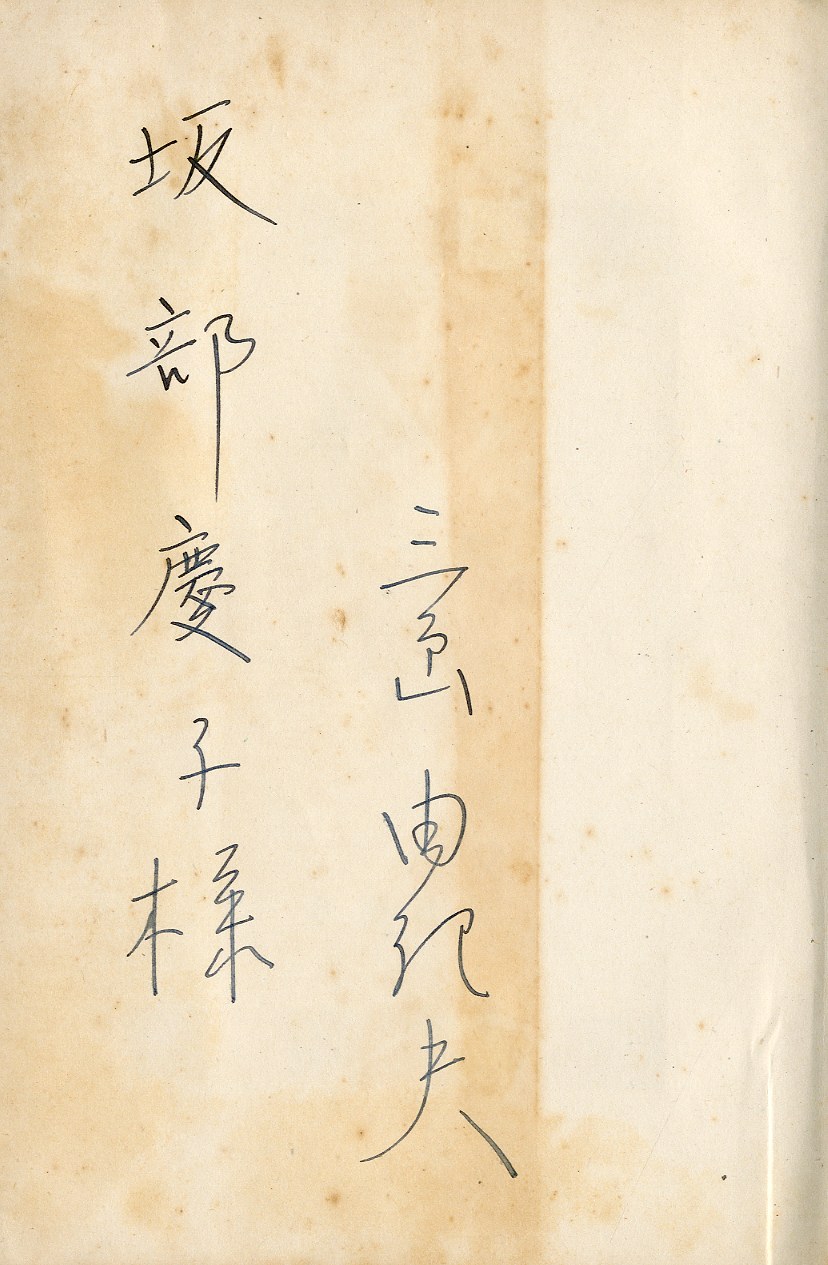 三島由紀夫
坂部慶子様